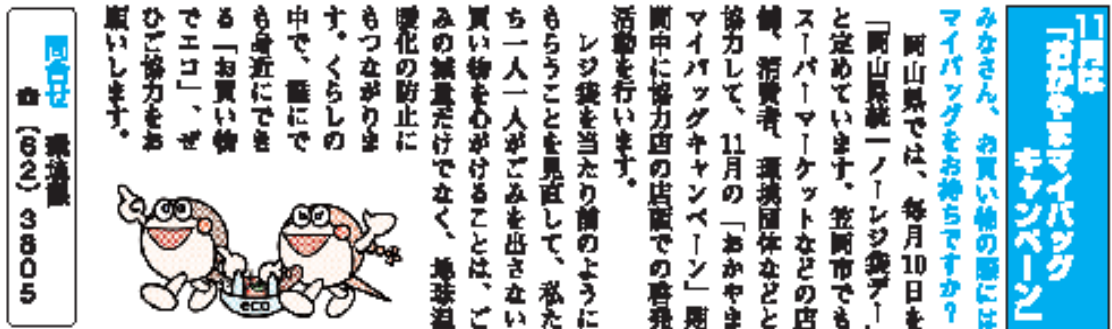 11月は
「おかやまマイバッグ
キャンペーン」
みなさん、お買い物の際には
マイバッグをお持ちですか?
岡山県では、毎月10日を
「岡山県統一ノーレジ袋デー」
と定めています。笠岡市でも
スーパーマーケットなどの店
舗、消費者、環境団体などと
協力して、11月の「おかやま
マイバッグキャンペーン」期
間中に協力店の店頭での啓発
活動を行います。
レジ袋を当たり前のように
もらうことを見直して、私た
ち一人一人がごみを出さない
買い物を心がけることは、ご
みの減量だけでなく、地球温
暖化の防止に
もつながりま
す。くらしの
中で、誰にで
も身近にでき
る「お買い物
でエコ」、ぜ
ひご協力をお
願いします。
eco
問合せ 環境課
☎(62)3805